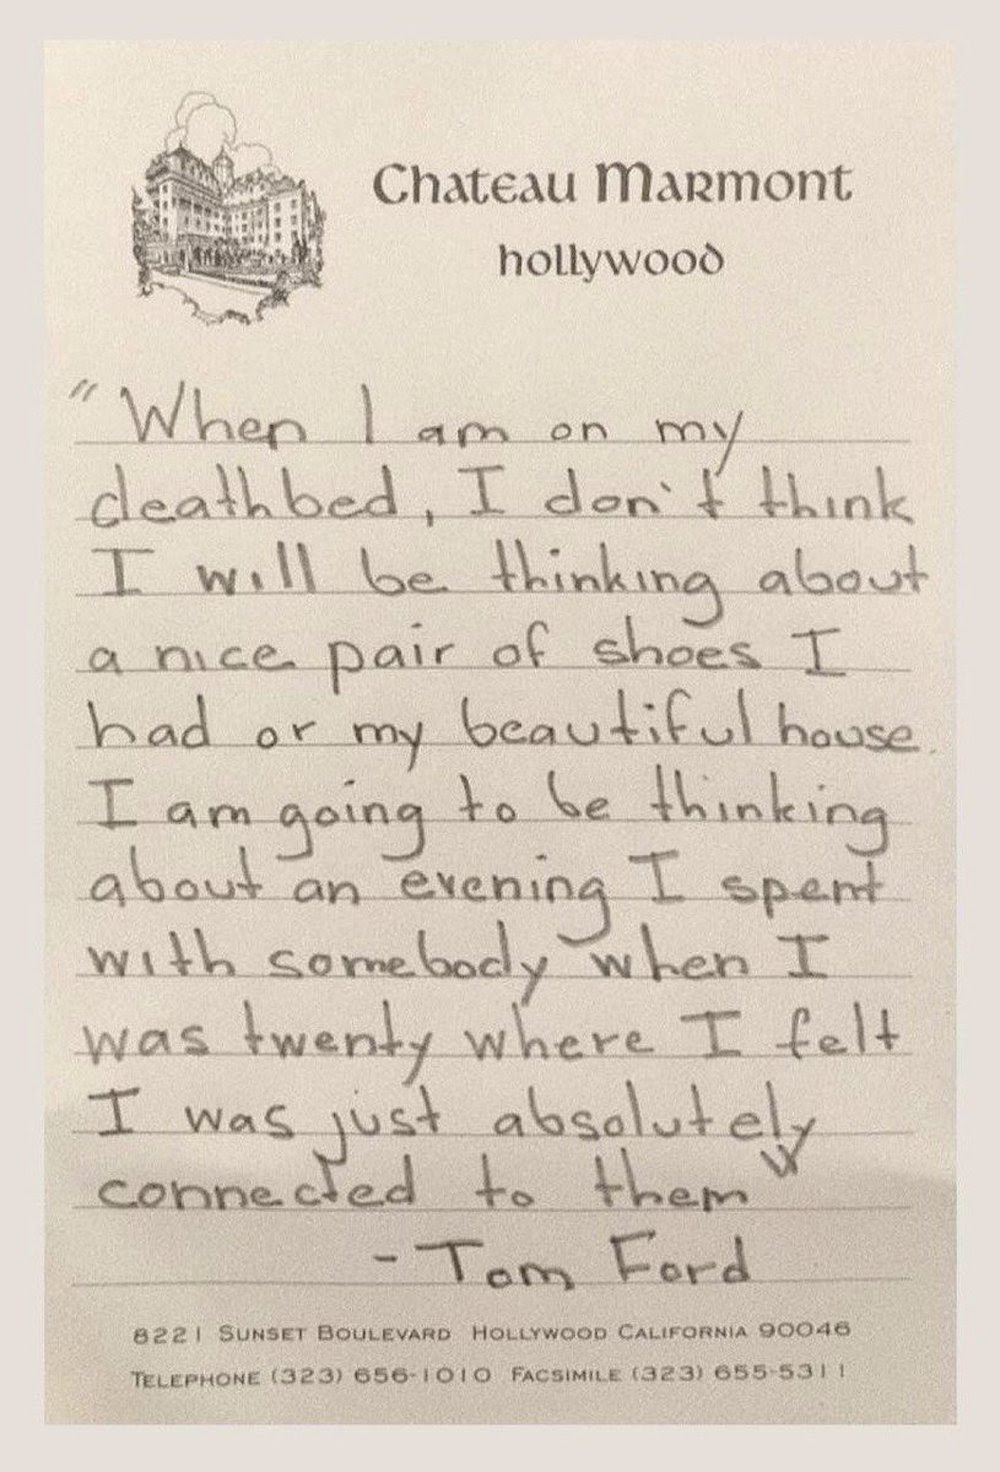 Chateau Marmont
hollywood
"When I am on my
deathbed, I don't think
I will be thinking about
a nice pair of shoes I
had or my beautiful house.
I am going to be thinking
about an evening I spent
with somebody when I
was twenty where I felt
I was just absolutely
connected to them"
- Tom Ford
8221 Sunset Boulevard Hollywood California 90046
Telephone (323) 656-1010 Facsimile (323) 655-5311